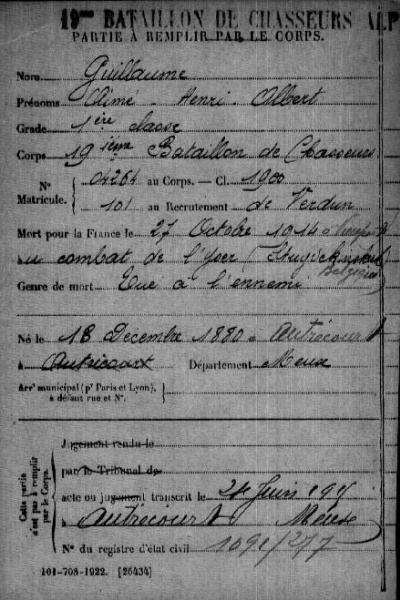 19me BATAILLON DE CHASSEURS ALP
PARTIE À REMPLIR PAR LE CORPS.
Nom Guillaume
Prénoms Aimé - Henri - Albert
Grade 1ère classe
Corps 19 ième Bataillon de Chasseurs
N° Matricule. 04264 au Corps. — Cl. 1900
101 au Recrutement de Verdun
Mort pour la France le 27 Octobre 1914 à
au combat de l'Yser
Belgique
Genre de mort Tué à l'ennemi
Né le 18 Décembre 1880 à Autrécourt
à Autrécourt Département Meuse
Arrt municipal (pr Paris et Lyon),
à défaut rue et N°.
Cette partie n'est pas à remplir par le Corps.
Jugement rendu le
par le Tribunal de
acte ou jugement transcrit le 24 Juin 191
à Autrécourt Meuse
N° du registre d'état civil 1091/277
101-708-1922. [26434]